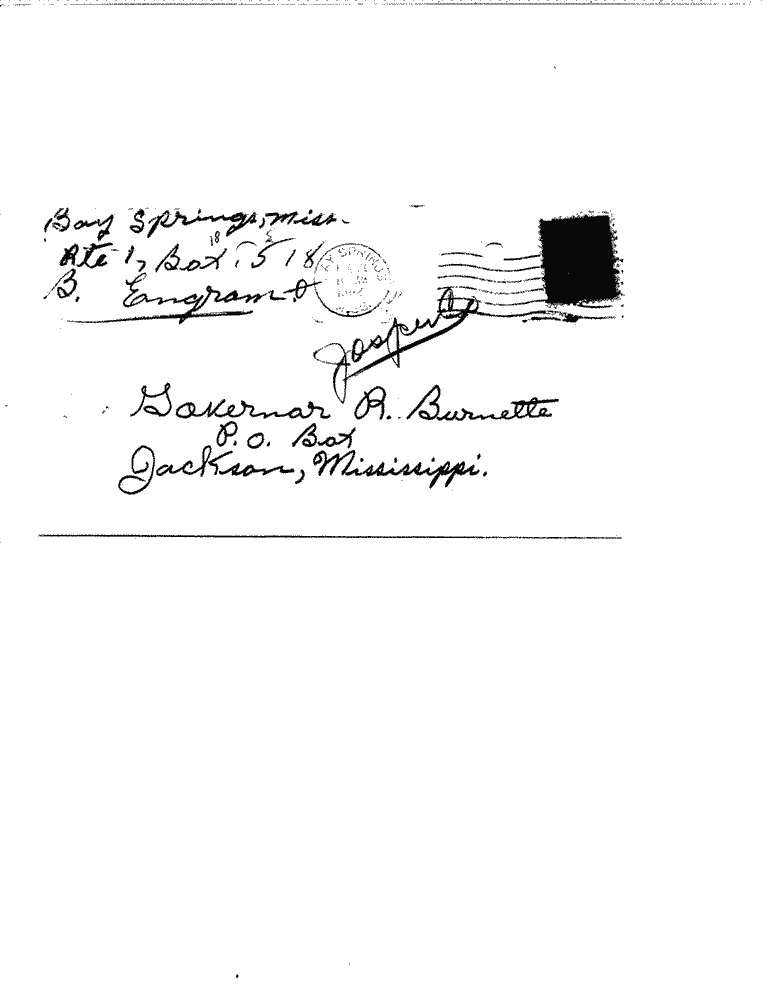 Bay Springs, Miss.
Rte 1, Box 1518
B.
AY SPRINGS
Jasper Co
Governar R. Burnette
P.O. Box
Jackson, Mississippi.